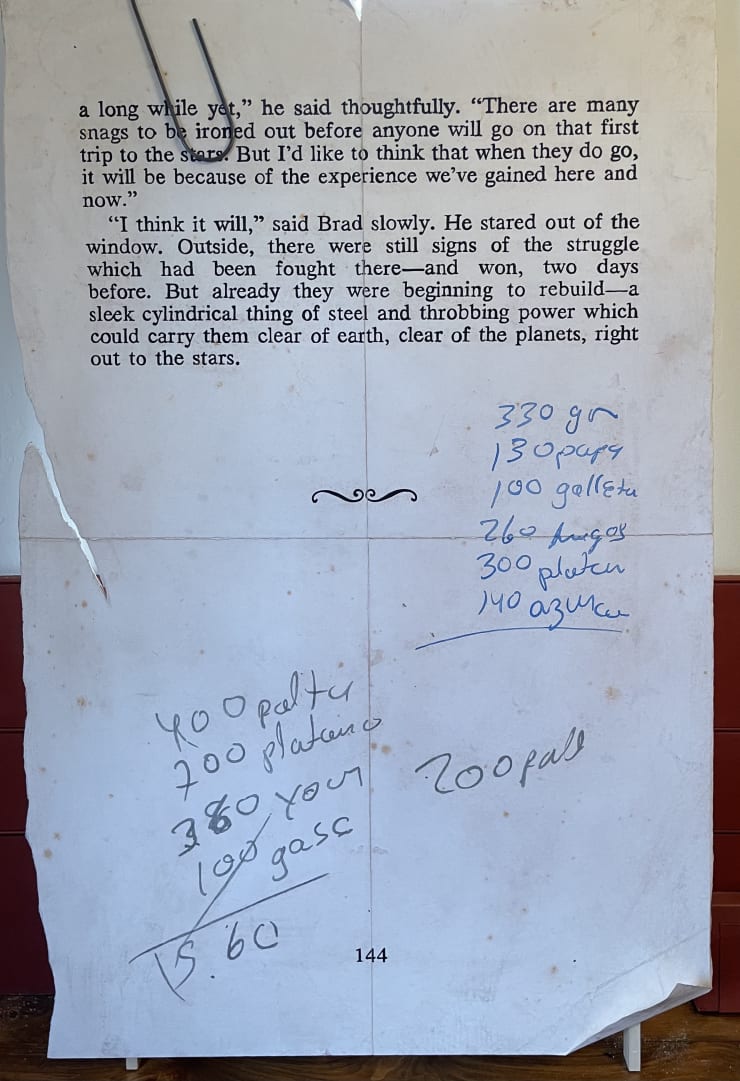 a long while yet,” he said thoughtfully. “There are many
snags to be ironed out before anyone will go on that first
trip to the stars. But I’d like to think that when they do go,
it will be because of the experience we’ve gained here and
now.”
“I think it will,” said Brad slowly. He stared out of the
window. Outside, there were still signs of the struggle
which had been fought there—and won, two days
before. But already they were beginning to rebuild—a
sleek cylindrical thing of steel and throbbing power which
could carry them clear of earth, clear of the planets, right
out to the stars.
330 gr
130 papa
100 galleta
260
300 platan
140 azuca
400 palta
700 platano
380 your
100 gasc
15.60
200
144